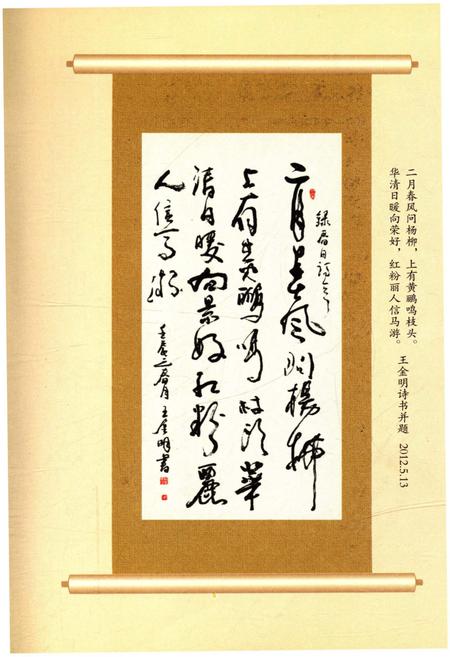 二月春风问杨柳，上有黄鹏鸣枝头。
华清日暖向荣好，红粉丽人信马游。
王金明诗书并题 2012.5.13
录春日诗一首
二月春风问杨柳
上有黄鹏鸣枝头华
清日暖向荣好红粉丽
人信马游
壬辰三春月王金明书